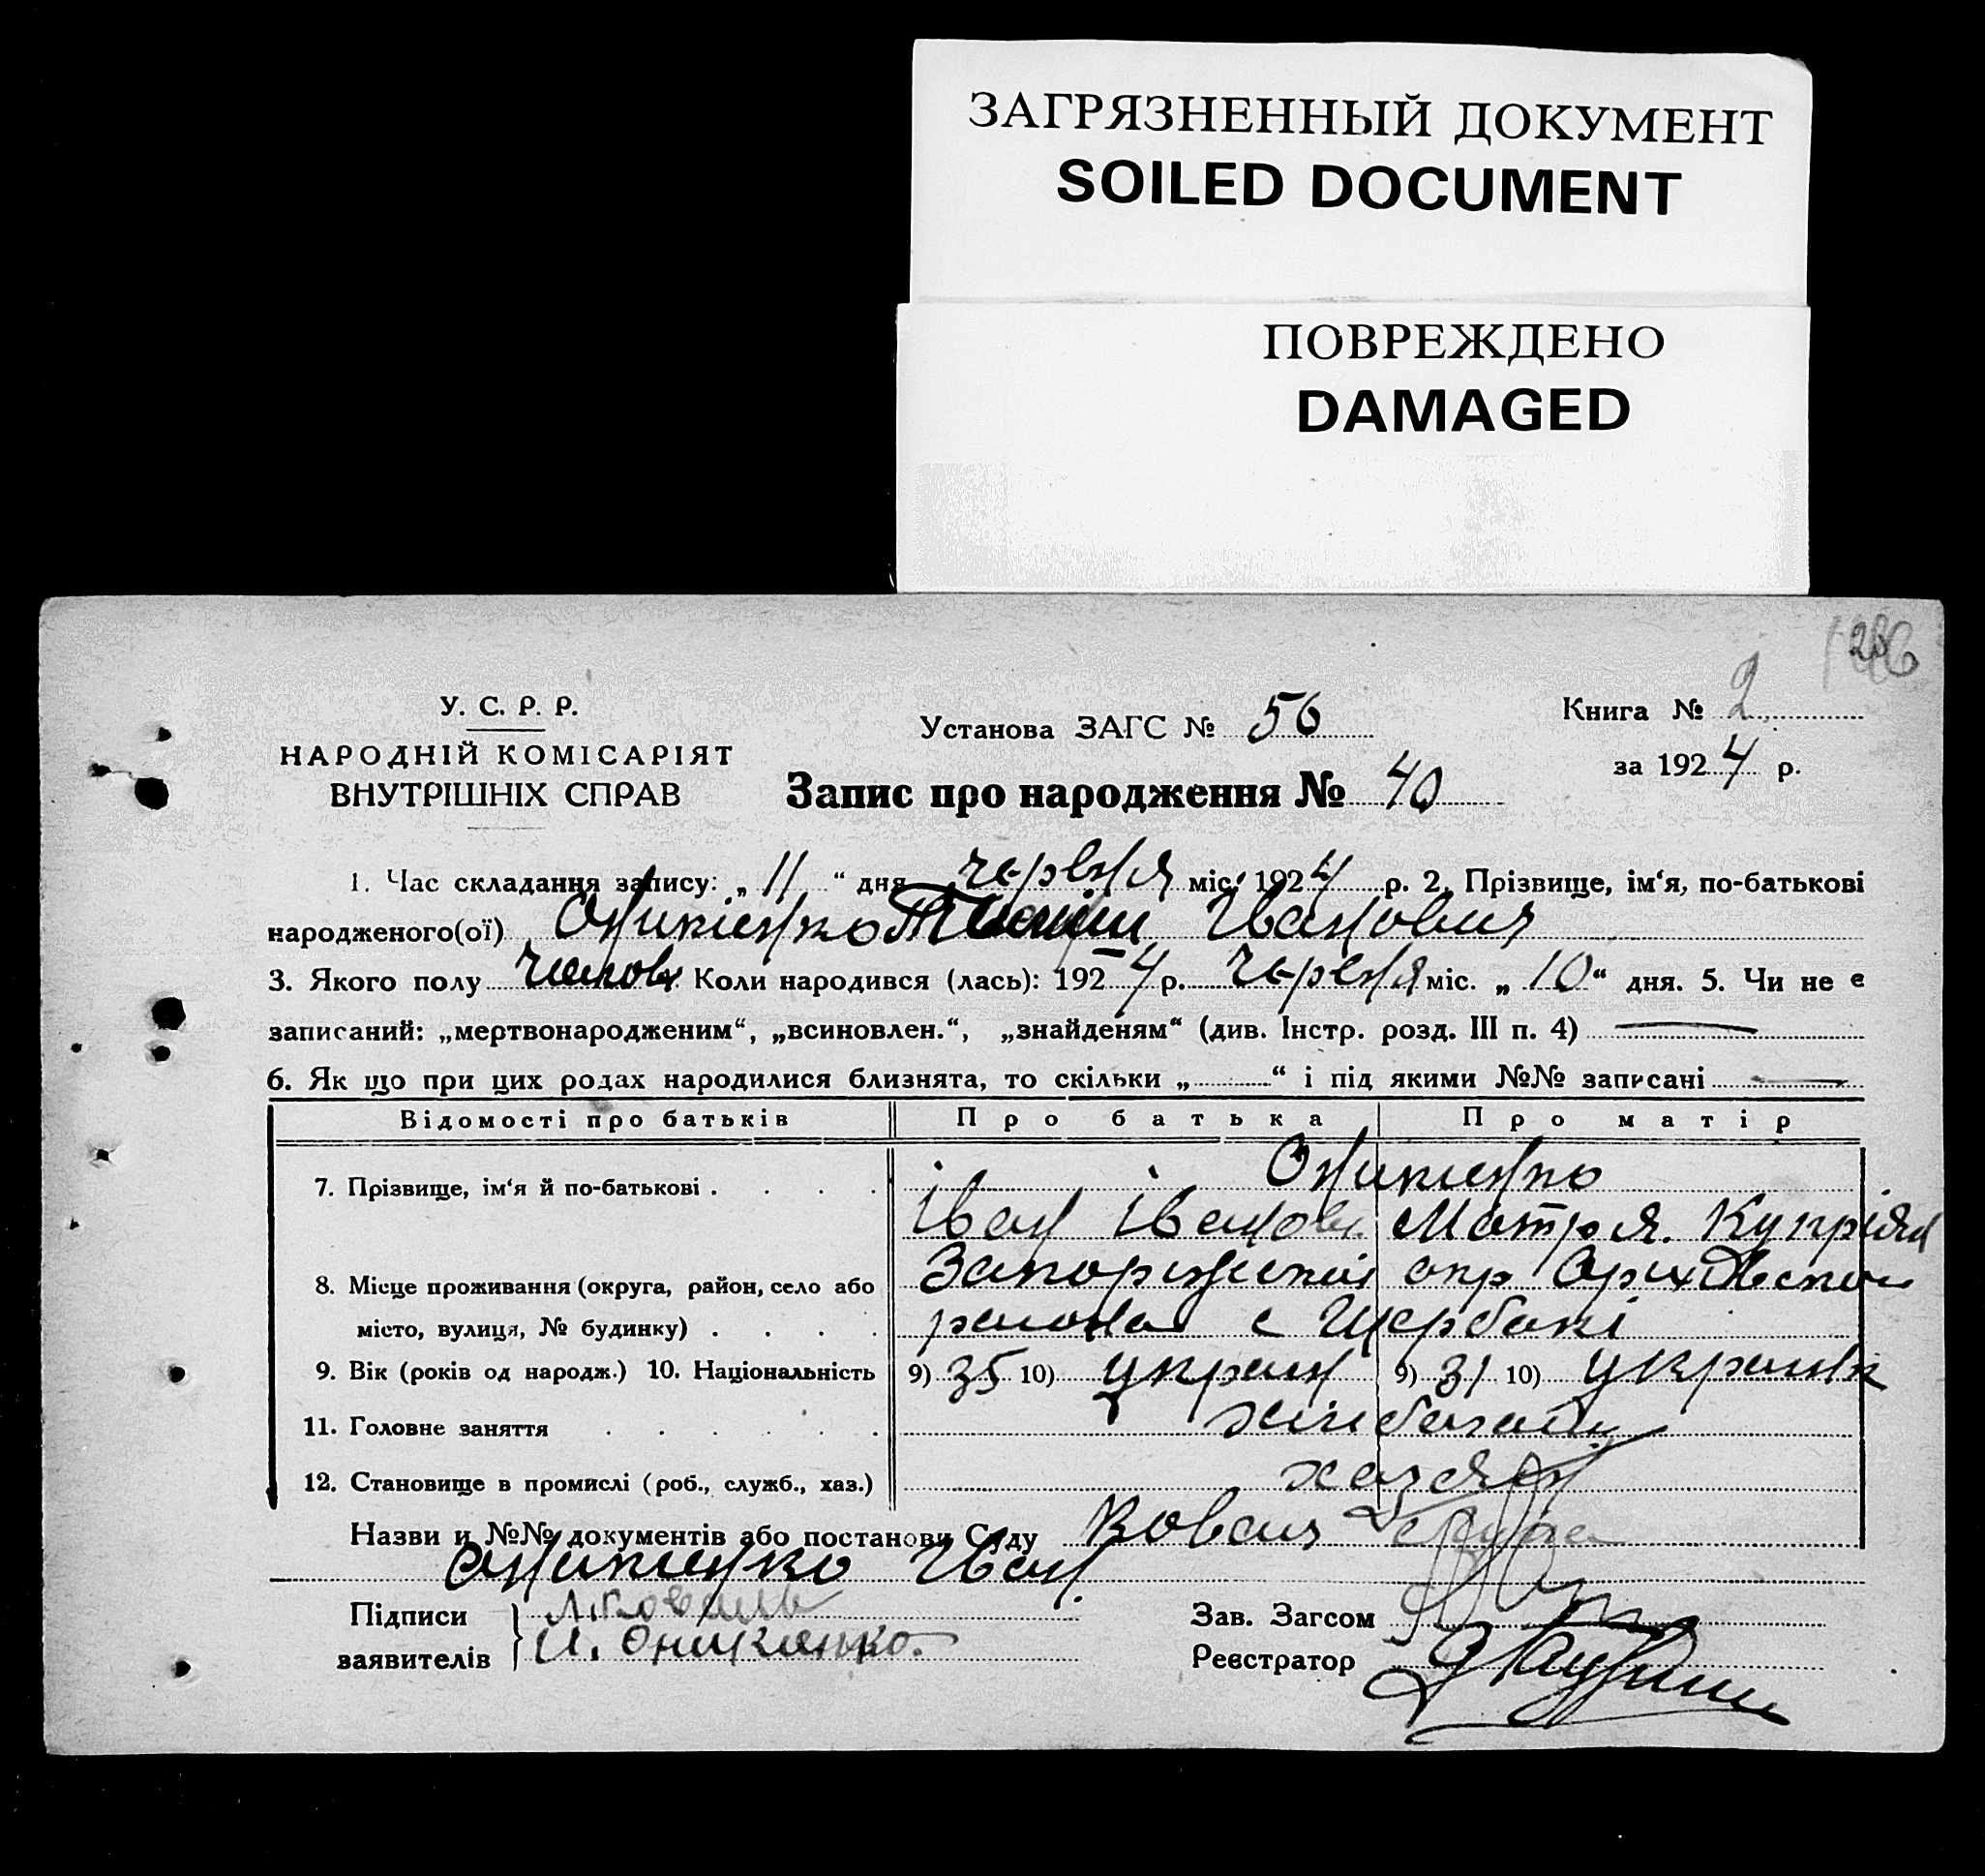 ЗАГРЯЗНЕННЫЙ ДОКУМЕНТ
SOILED DOCUMENT
ПОВРЕЖДЕНО
DAMAGED
У. С. Р. Р.
НАРОДНІЙ КОМІСАРІЯТ
ВНУТРІШНІХ СПРАВ
Установа ЗАГС № 56
Книга № 2
за 1924 р.
Запис про народження № 40
1. Час складання запису: „ 11 “ дня червня міс. 1924 р. 2. Прізвище, ім‘я, по-батькові
народженого(ої) Оникиенко Иванович
3. Якого полу чолов. Коли народився (лась): 1924 р. червня міс. „ 10 “ дня. 5. Чи не є
записаний: „мертвонародженим“, „всиновлен.“, „знайденям“ (див. Інстр. розд. III п. 4) —
6. Як що при цих родах народилися близнята, то скільки „ “ і під якими №№ записані —
Відомості про батьків Про батька Про матір
7. Прізвище, ім‘я й по-батькові . . . . Оникиенко
Іван Іванов. Мотря. Купріян
8. Місце проживання (округа, район, село або Запоріжської окр Оріхівської
місто, вулиця, № будинку) . . . . района с Щербакі
9. Вік (років од народж.) 10. Національність 9) 35 10) украин 9) 31 10) украинк
11. Головне заняття . . . . . . хлібороби
12. Становище в промислі (роб., служб., хаз.) хазяін
Назви и №№ документів або постанови Суду Коваль
Оникиенко Иван.
Підписи Коваль
заявителів И. Оникиенко.
Зав. Загсом
Реєстратор